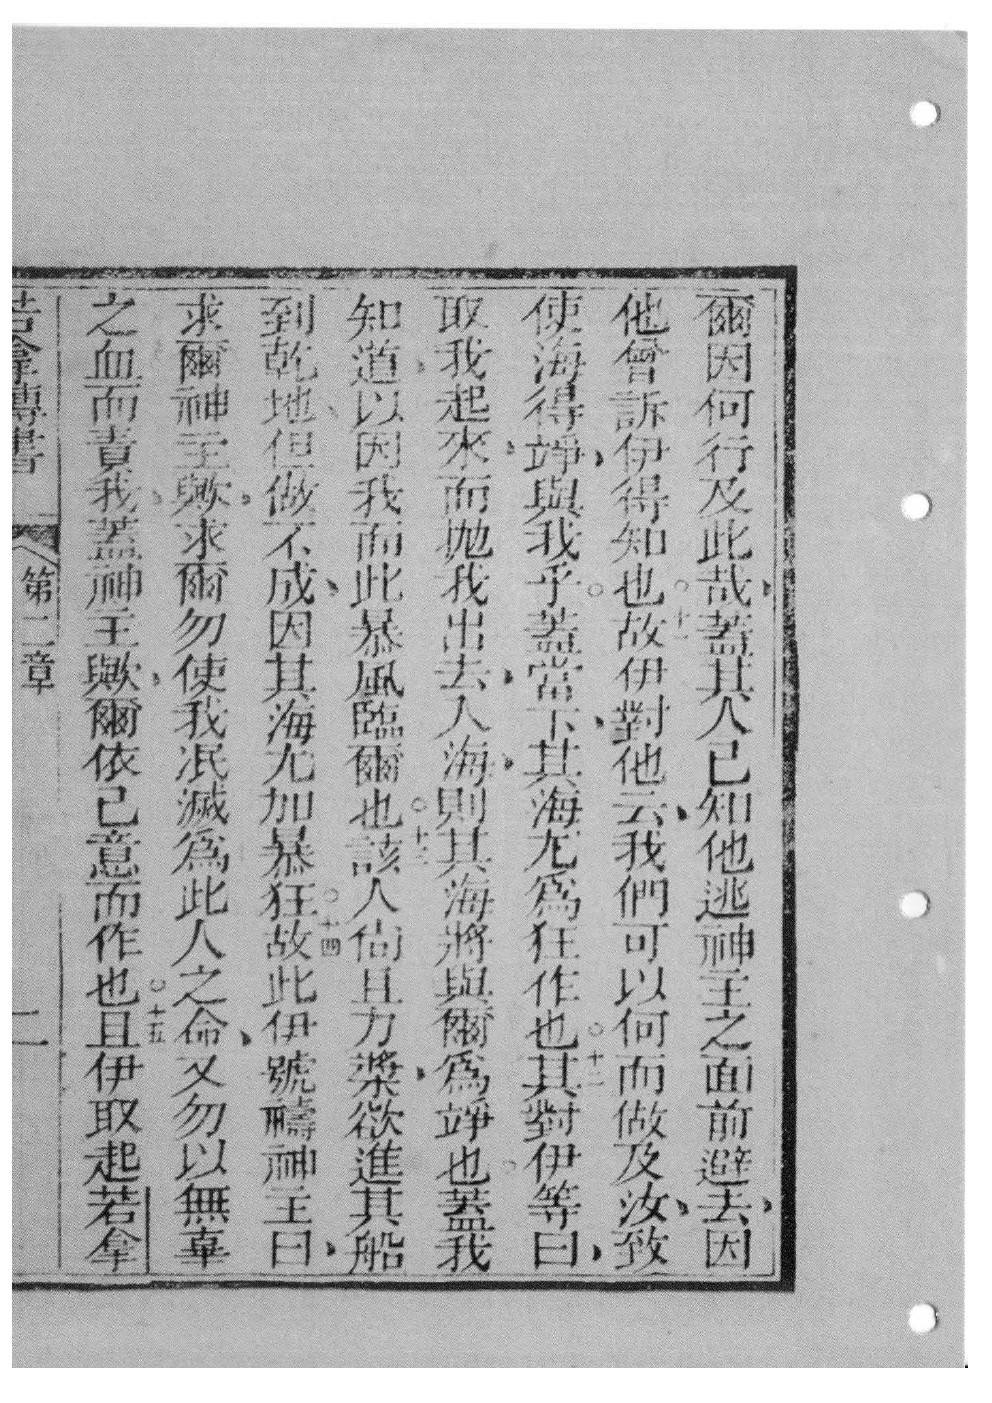 爾因何行及此哉、蓋其人已知他逃神主之面前避去、因
他曾訴伊得知也○十一故伊對他云、我們可以何而做及汝、致
使海得竫、與我乎○蓋當下、其海尤爲狂作也○十二其對伊等曰、
取我起來、而抛我出去、入海、則其海將與爾爲竫也○蓋我
知道、以因我而此暴風臨爾也○十三該人尙且力槳、欲進其船
到乾地、但做不成、因其海尤加暴狂○十四故此伊號禱神主曰、
求爾神主歟、求爾勿使我泯滅爲此人之命、又勿以無辜
之血而責我、蓋神主歟、爾依己意而作也○十五且伊取起若拿
若拿傳書 第二章 二